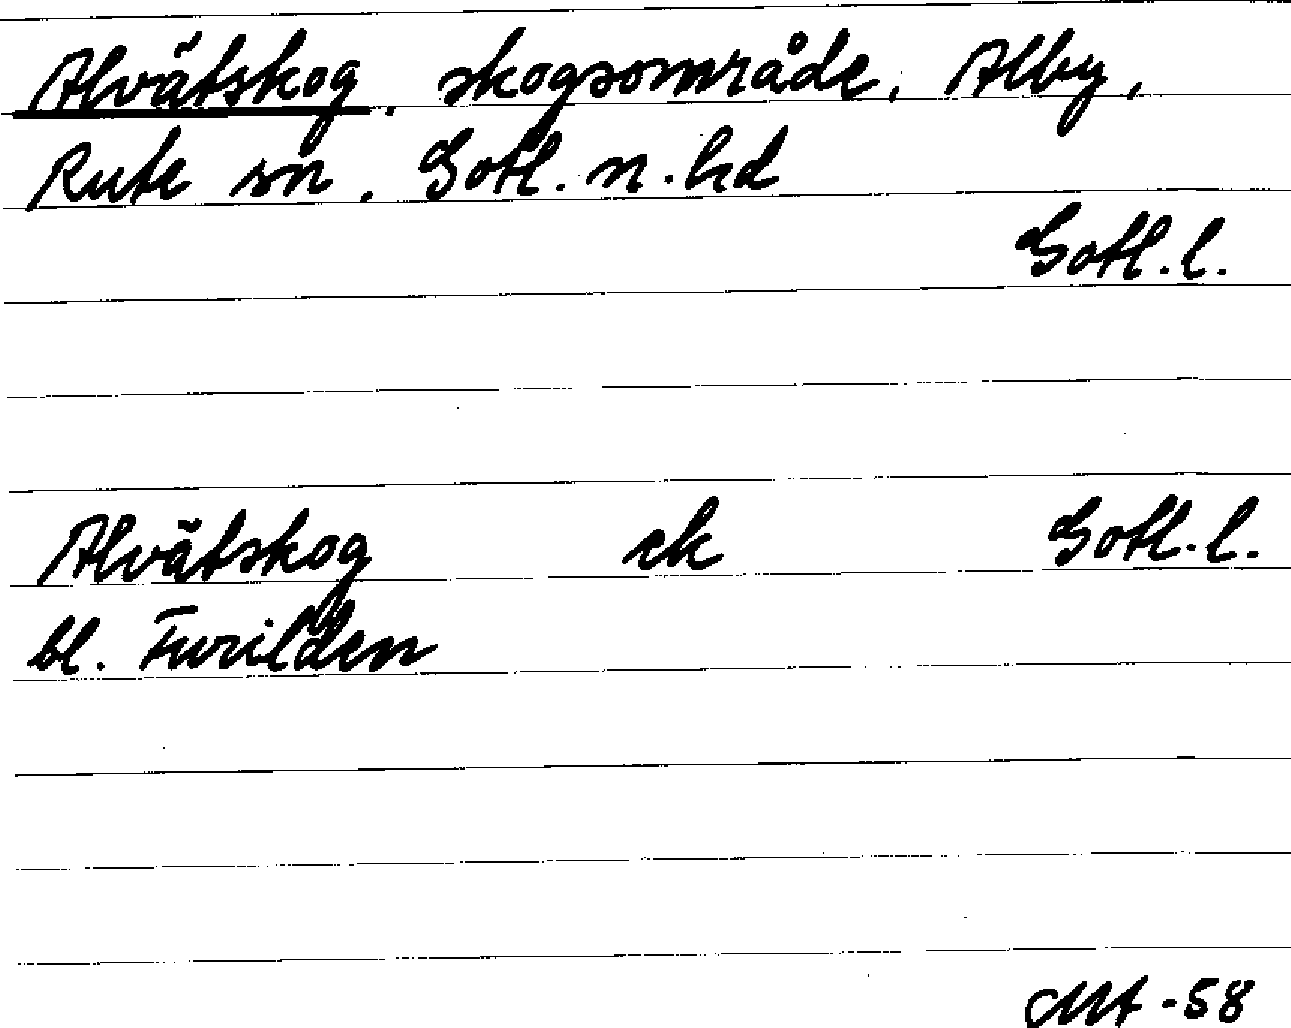 Alvätskog, skogsområde, Alby,
Rute sn, Gotl. n. hd
Gotl. l.
Alvätskog ek Gotl. l.
bl. Furilden
MA -58